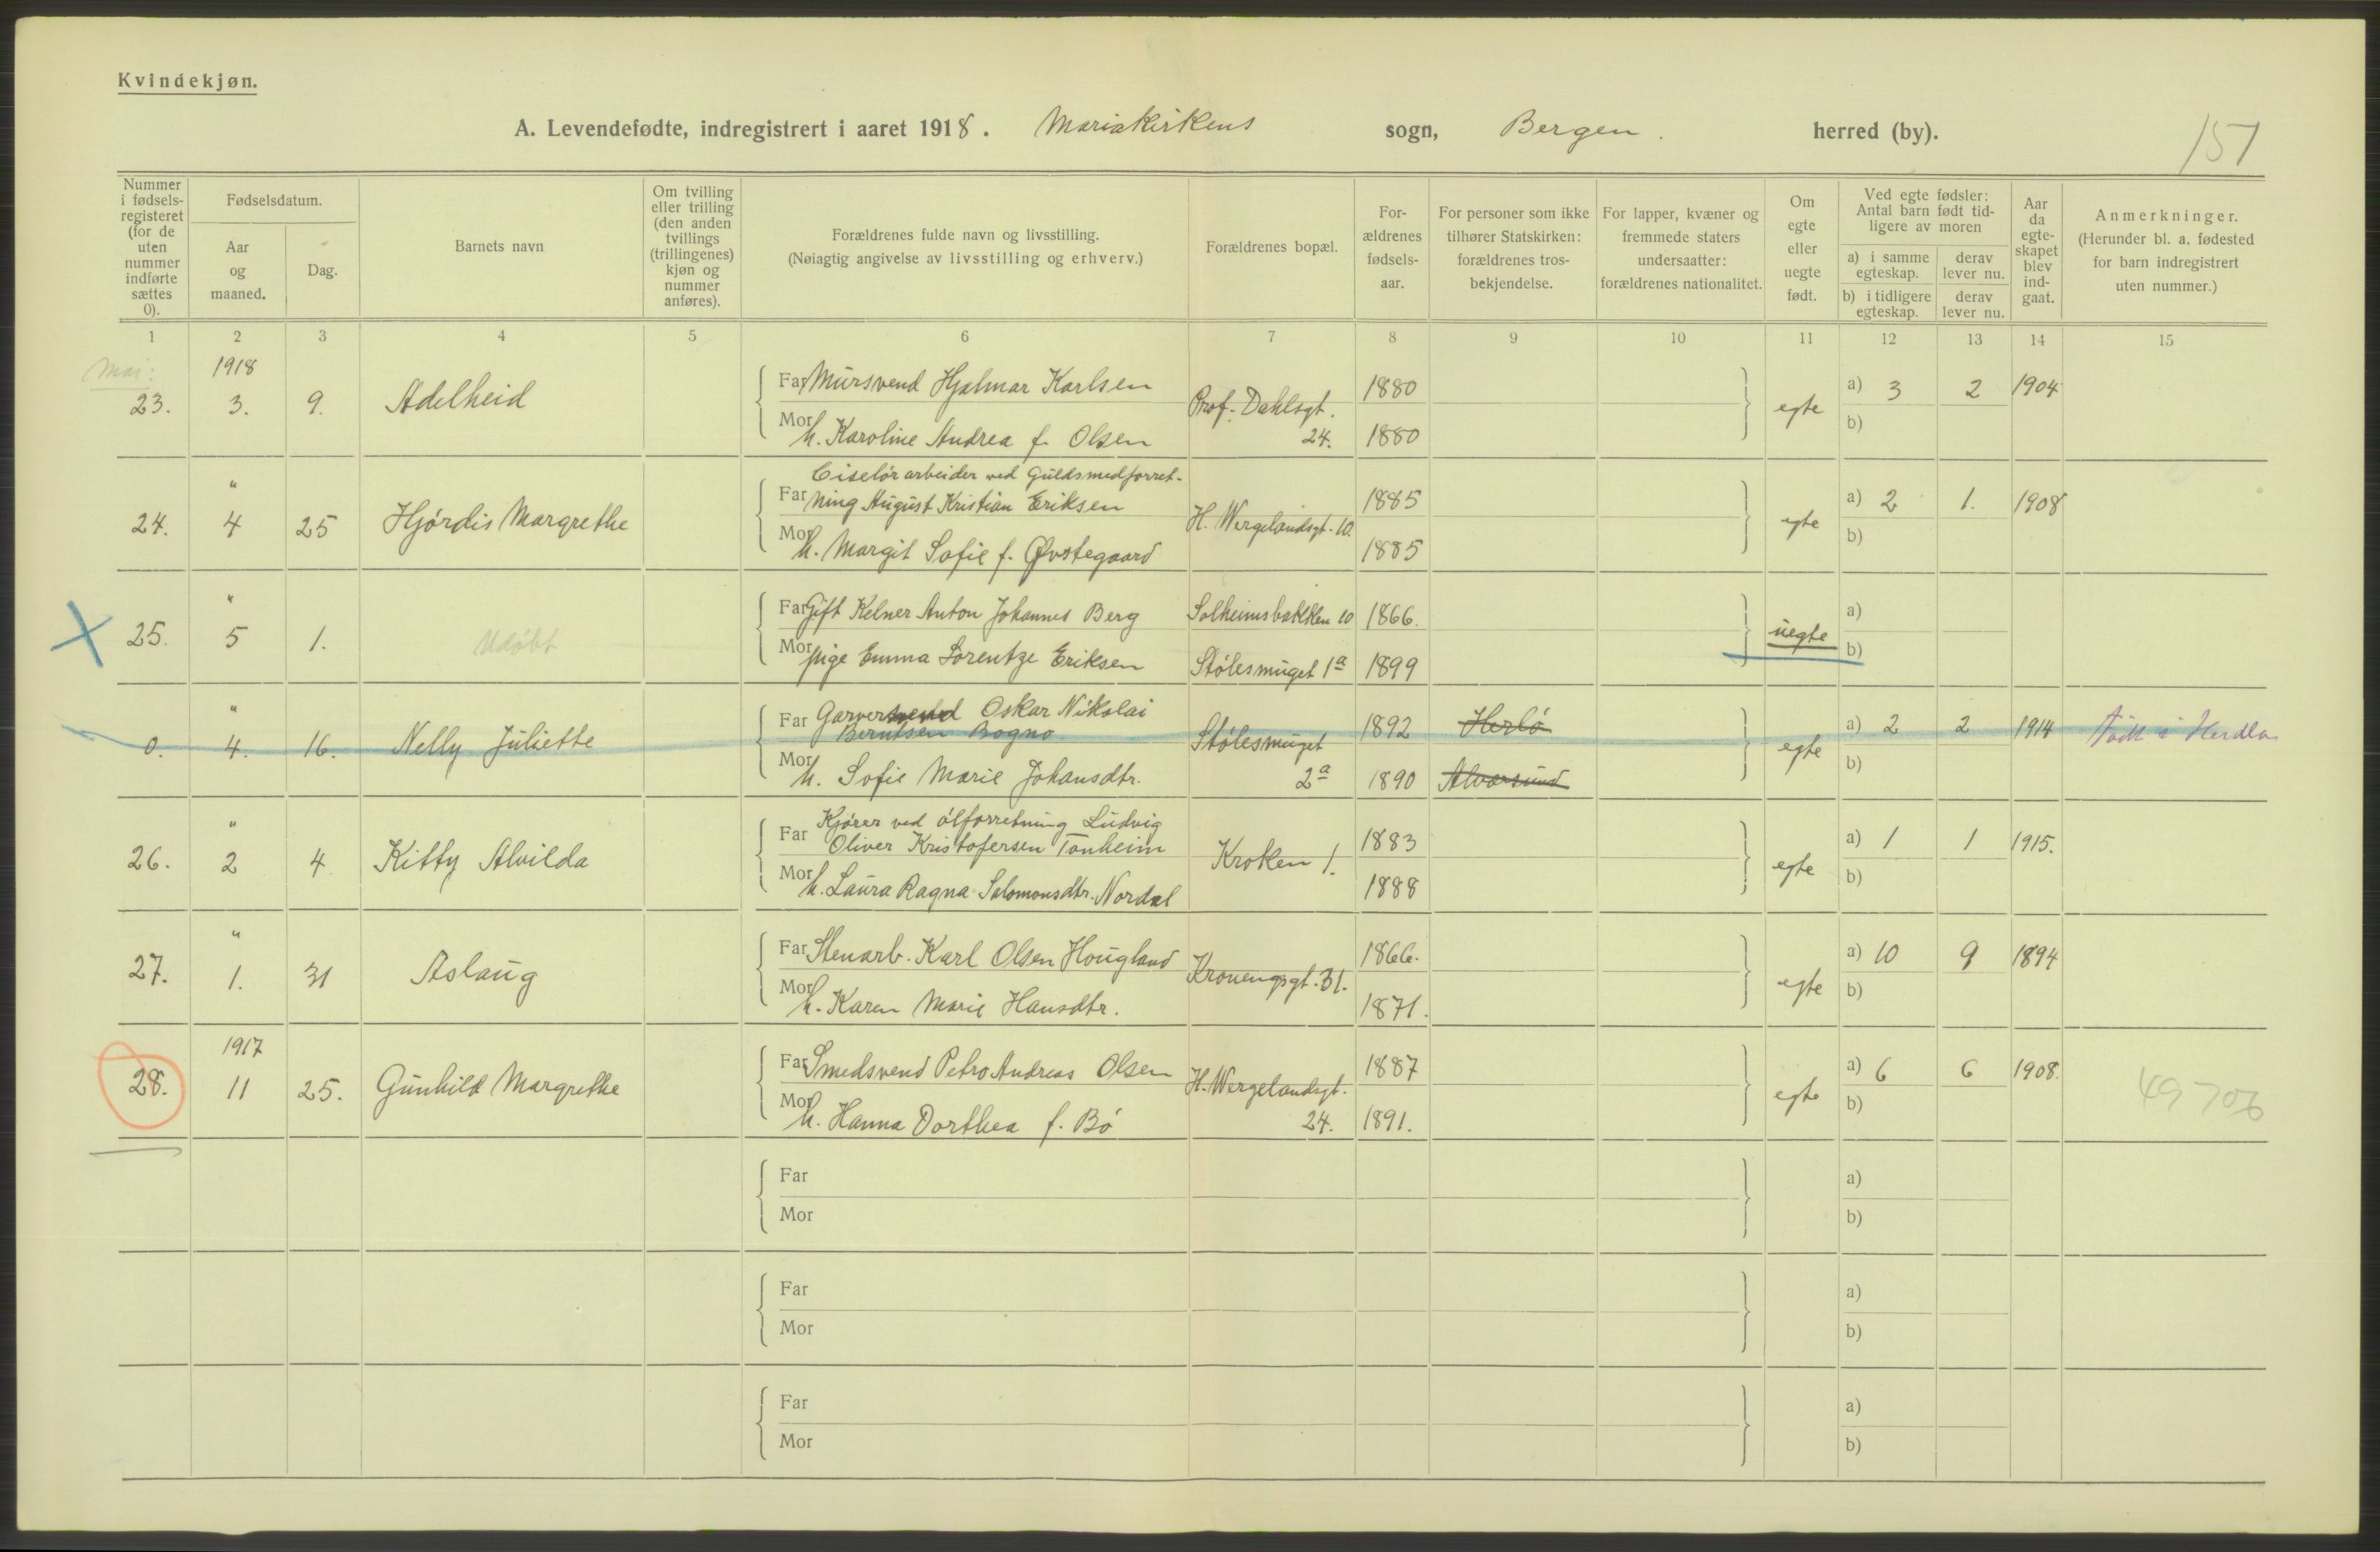 Kvindekjøn.
A. Levendefødte, indregistrert i aaret 1918. Mariakirkens sogn, Bergen. herred (by).
151
Nummer i fødsels-registeret (for de uten nummer indførte sættes 0).
Fødselsdatum.
Aar og maaned.
Dag.
Barnets navn
Om tvilling eller trilling (den anden tvillings (trillingenes) kjøn og nummer anføres).
Forældrenes fulde navn og livsstilling.
(Nøiagtig angivelse av livsstilling og erhverv.)
Forældrenes bopæl.
For-ældrenes fødsels-aar.
For personer som ikke tilhører Statskirken: forældrenes tros-bekjendelse.
For lapper, kvæner og fremmede staters undersaatter: forældrenes nationalitet.
Om egte eller uegte født.
Ved egte fødsler: Antal barn født tid-ligere av moren
a) i samme egteskap.
derav lever nu.
b) i tidligere egteskap.
derav lever nu.
Aar da egte-skapet blev ind-gaat.
Anmerkninger.
(Herunder bl. a. fødested for barn indregistrert uten nummer.)
1 2 3 4 5 6 7 8 9 10 11 12 13 14 15
Mai: 1918
23. 3. 9. Adelheid
Far Mursvend Hjalmar Karlsen Prof. Dahlsgt. 24. 1880 egte a) 3 2 1904
Mor h. Karoline Andrea f. Olsen 1880 b)
" 24. 4 25 Hjördis Margrethe
Ciselör arbeider ved Guldsmedforret-
Far ning August Kristian Eriksen H. Wergelandsgt. 10. 1885 egte a) 2 1. 1908
Mor h. Margit Sofie f. Øvstegaard 1885 b)
" 25. 5 1. Udöbt
Far Gift Kelner Anton Johannes Berg Solheimsbakken 10 1866. uegte a)
Mor pige Emma Lorentze Eriksen Stölesmuget 1a 1899 b)
" 0. 4. 16. Nelly Juliette
Far Garversvend Oskar Nikolai
Berntsen Bogno Stölesmuget 2a 1892 Herlö egte a) 2 2 1914 Född i Herdla
Mor h. Sofie Marie Johansdtr. 1890 Alversund b)
" 26. 2 4 Kitty Alvilda
Kjörer ved ölforretning Ludvig
Far Oliver Kristofersen Tonheim Kroken 1. 1883 egte a) 1 1 1915.
Mor h. Laura Ragna Salomonsdtr. Nordal 1888 b)
" 27. 1. 31 Aslaug
Far Stenarb. Karl Olsen Hougland Kronengsgt. 31. 1866. egte a) 10 9 1894
Mor h. Karen Marie Hansdtr. 1871. b)
1917
28. 11 25. Gunhild Margrethe
Far Smedsvend Petro Andreas Olsen H. Wergelandsgt. 24. 1887 egte a) 6 6 1908.
Mor h. Hanna Dorthea f. Bö 1891. b)
49706
Far a)
Mor b)
Far a)
Mor b)
Far a)
Mor b)